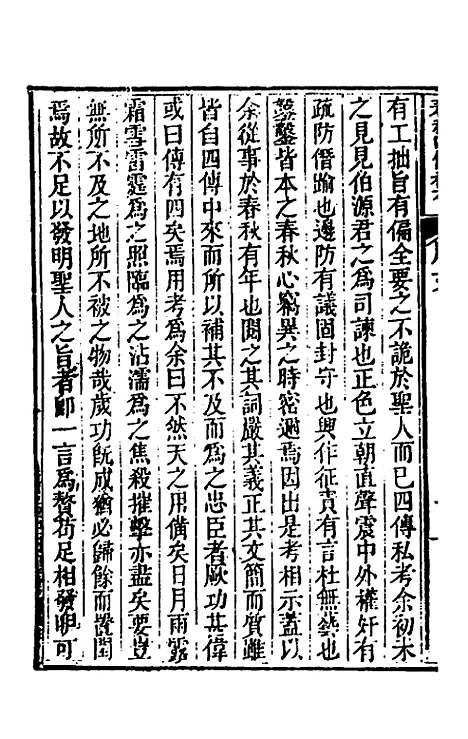 有工拙旨有偏全要之不詭於聖人而已四傳私考余初未
之見見伯源君之為司諫也正色立朝直聲震中外權奸有
疏防僭踰也邊防有議固封守也興作征責有言杜無藝也
鑿鑿皆本之春秋心竊異之時密邇焉因出是考相示蓋以
余從事於春秋有年也閱之其詞嚴其義正其文簡而質雖
皆自四傳中來而所以補其不及而為之忠臣者厥功其偉
或曰傳有四矣焉用考為余曰不然天之用備矣日月雨露
霜雪雷霆為之照臨為之沾濡為之焦殺摧擊亦盡矣要豈
無所不及之地所不被之物哉歲功既成猶必歸餘而置閏
焉故不足以發明聖人之旨者即一言為贅苟足相發明可